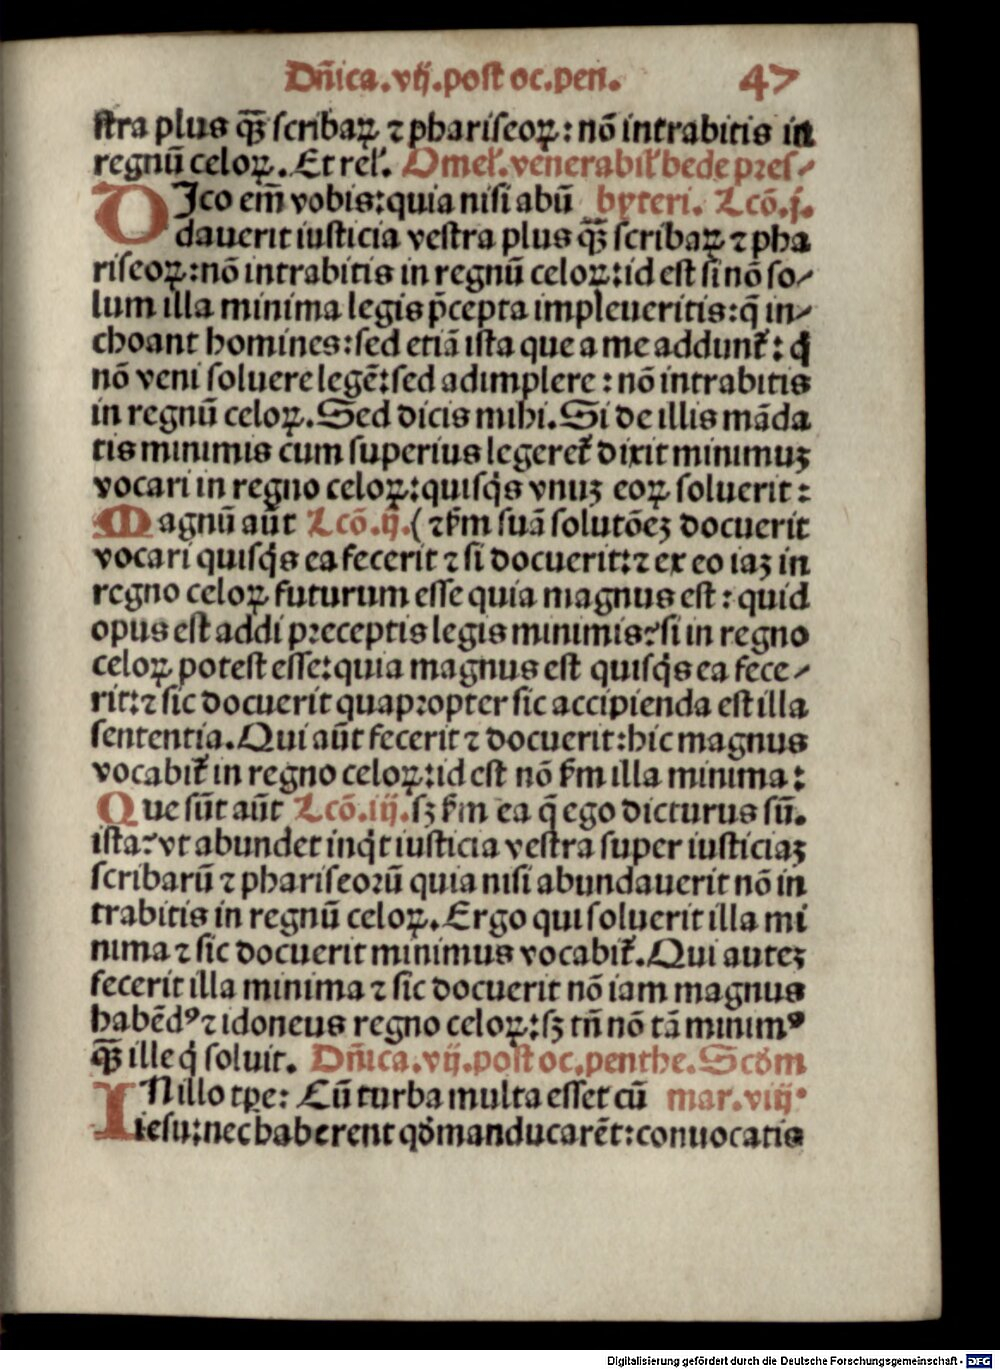 Dñica.vij.post oc.pen. 47
stra plus qꝫ̄ scribaꝝ ⁊ phariseoꝝ: nō intrabitis in
regnū celoꝝ. Et rel̕. Omel̕. venerabil̕ bede pres⸗
DIco em̄ vobis: quia nisi abū byteri. Lcō.j.
dauerit iusticia vestra plus qꝫ̄ scribaꝝ ⁊ pha
riseoꝝ: nō intrabitis in regnū celoꝝ: id est si nō so⸗
lum illa minima legis p̄cepta impleueritis: q̄ in⸗
choant homines: sed etiā ista que a me addunt̕: q̇
nō veni soluere legē: sed adimplere: nō intrabitis
in regnū celoꝝ. Sed dicis mihi. Si de illis māda
tis minimis cum superius legeret̕ dixit minimuꝫ
vocari in regno celoꝝ: quisq̇s vnuꝫ eoꝝ soluerit:
Magnū aūt Lcō.ij. (⁊ ẜm suā solutōeꝫ docuerit
vocari quisq̇s ea fecerit ⁊ si docuerit: ⁊ ex eo iaꝫ in
regno celoꝝ futurum esse quia magnus est: quid
opus est addi preceptis legis minimis? si in regno
celoꝝ potest esse: quia magnus est quisq̇s ea fece⸗
rit: ⁊ sic docuerit quapropter sic accipienda est illa
sententia. Qui aūt fecerit ⁊ docuerit: hic magnus
vocabit̕ in regno celoꝝ: id est nō ẜm illa minima:
Que sūt aūt Lcō.iij. sꝫ ẜm ea q̄ ego dicturus sū.
ista? vt abundet inq̇t iusticia vestra super iusticiaꝫ
scribarū ⁊ phariseorū quia nisi abundauerit nō in
trabitis in regnū celoꝝ. Ergo qui soluerit illa mi
nima ⁊ sic docuerit minimus vocabit̕. Qui auteꝫ
fecerit illa minima ⁊ sic docuerit nō iam magnus
habēdꝰ ⁊ idoneus regno celoꝝ: sꝫ tn̄ nō tā minimꝰ
qꝫ̄ ille q̇ soluit. Dñica.vij.post oc.penthe. Scd̕m
IN illo tp̄e: Cū turba multa esset cū mar.viij.
iesu: nec haberent qd̕ manducarēt: conuocatis
Digitalisierung gefördert durch die Deutsche Forschungsgemeinschaft - DFG